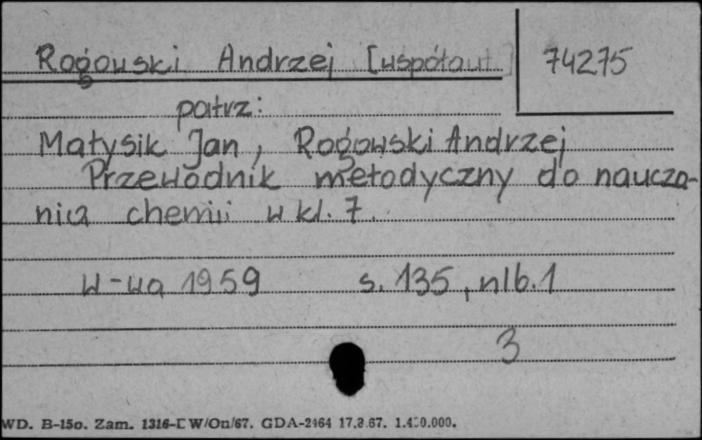 Rogowski Andrzej [współaut.] 74275
patrz:
Matysik Jan, Rogowski Andrzej
Przewodnik metodyczny do naucza-
nia chemii w kl. 7.
W-wa 1959 s. 135, nlb. 1
3
WD. B-15o. Zam. 1316-D W/On/67. GDA-2464 17.8.67.